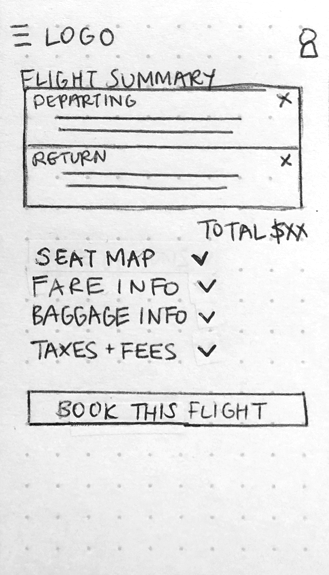 LOGO
FLIGHT SUMMARY
DEPARTING
RETURN
TOTAL $XX
SEAT MAP
FARE INFO
BAGGAGE INFO
TAXES + FEES
BOOK THIS FLIGHT